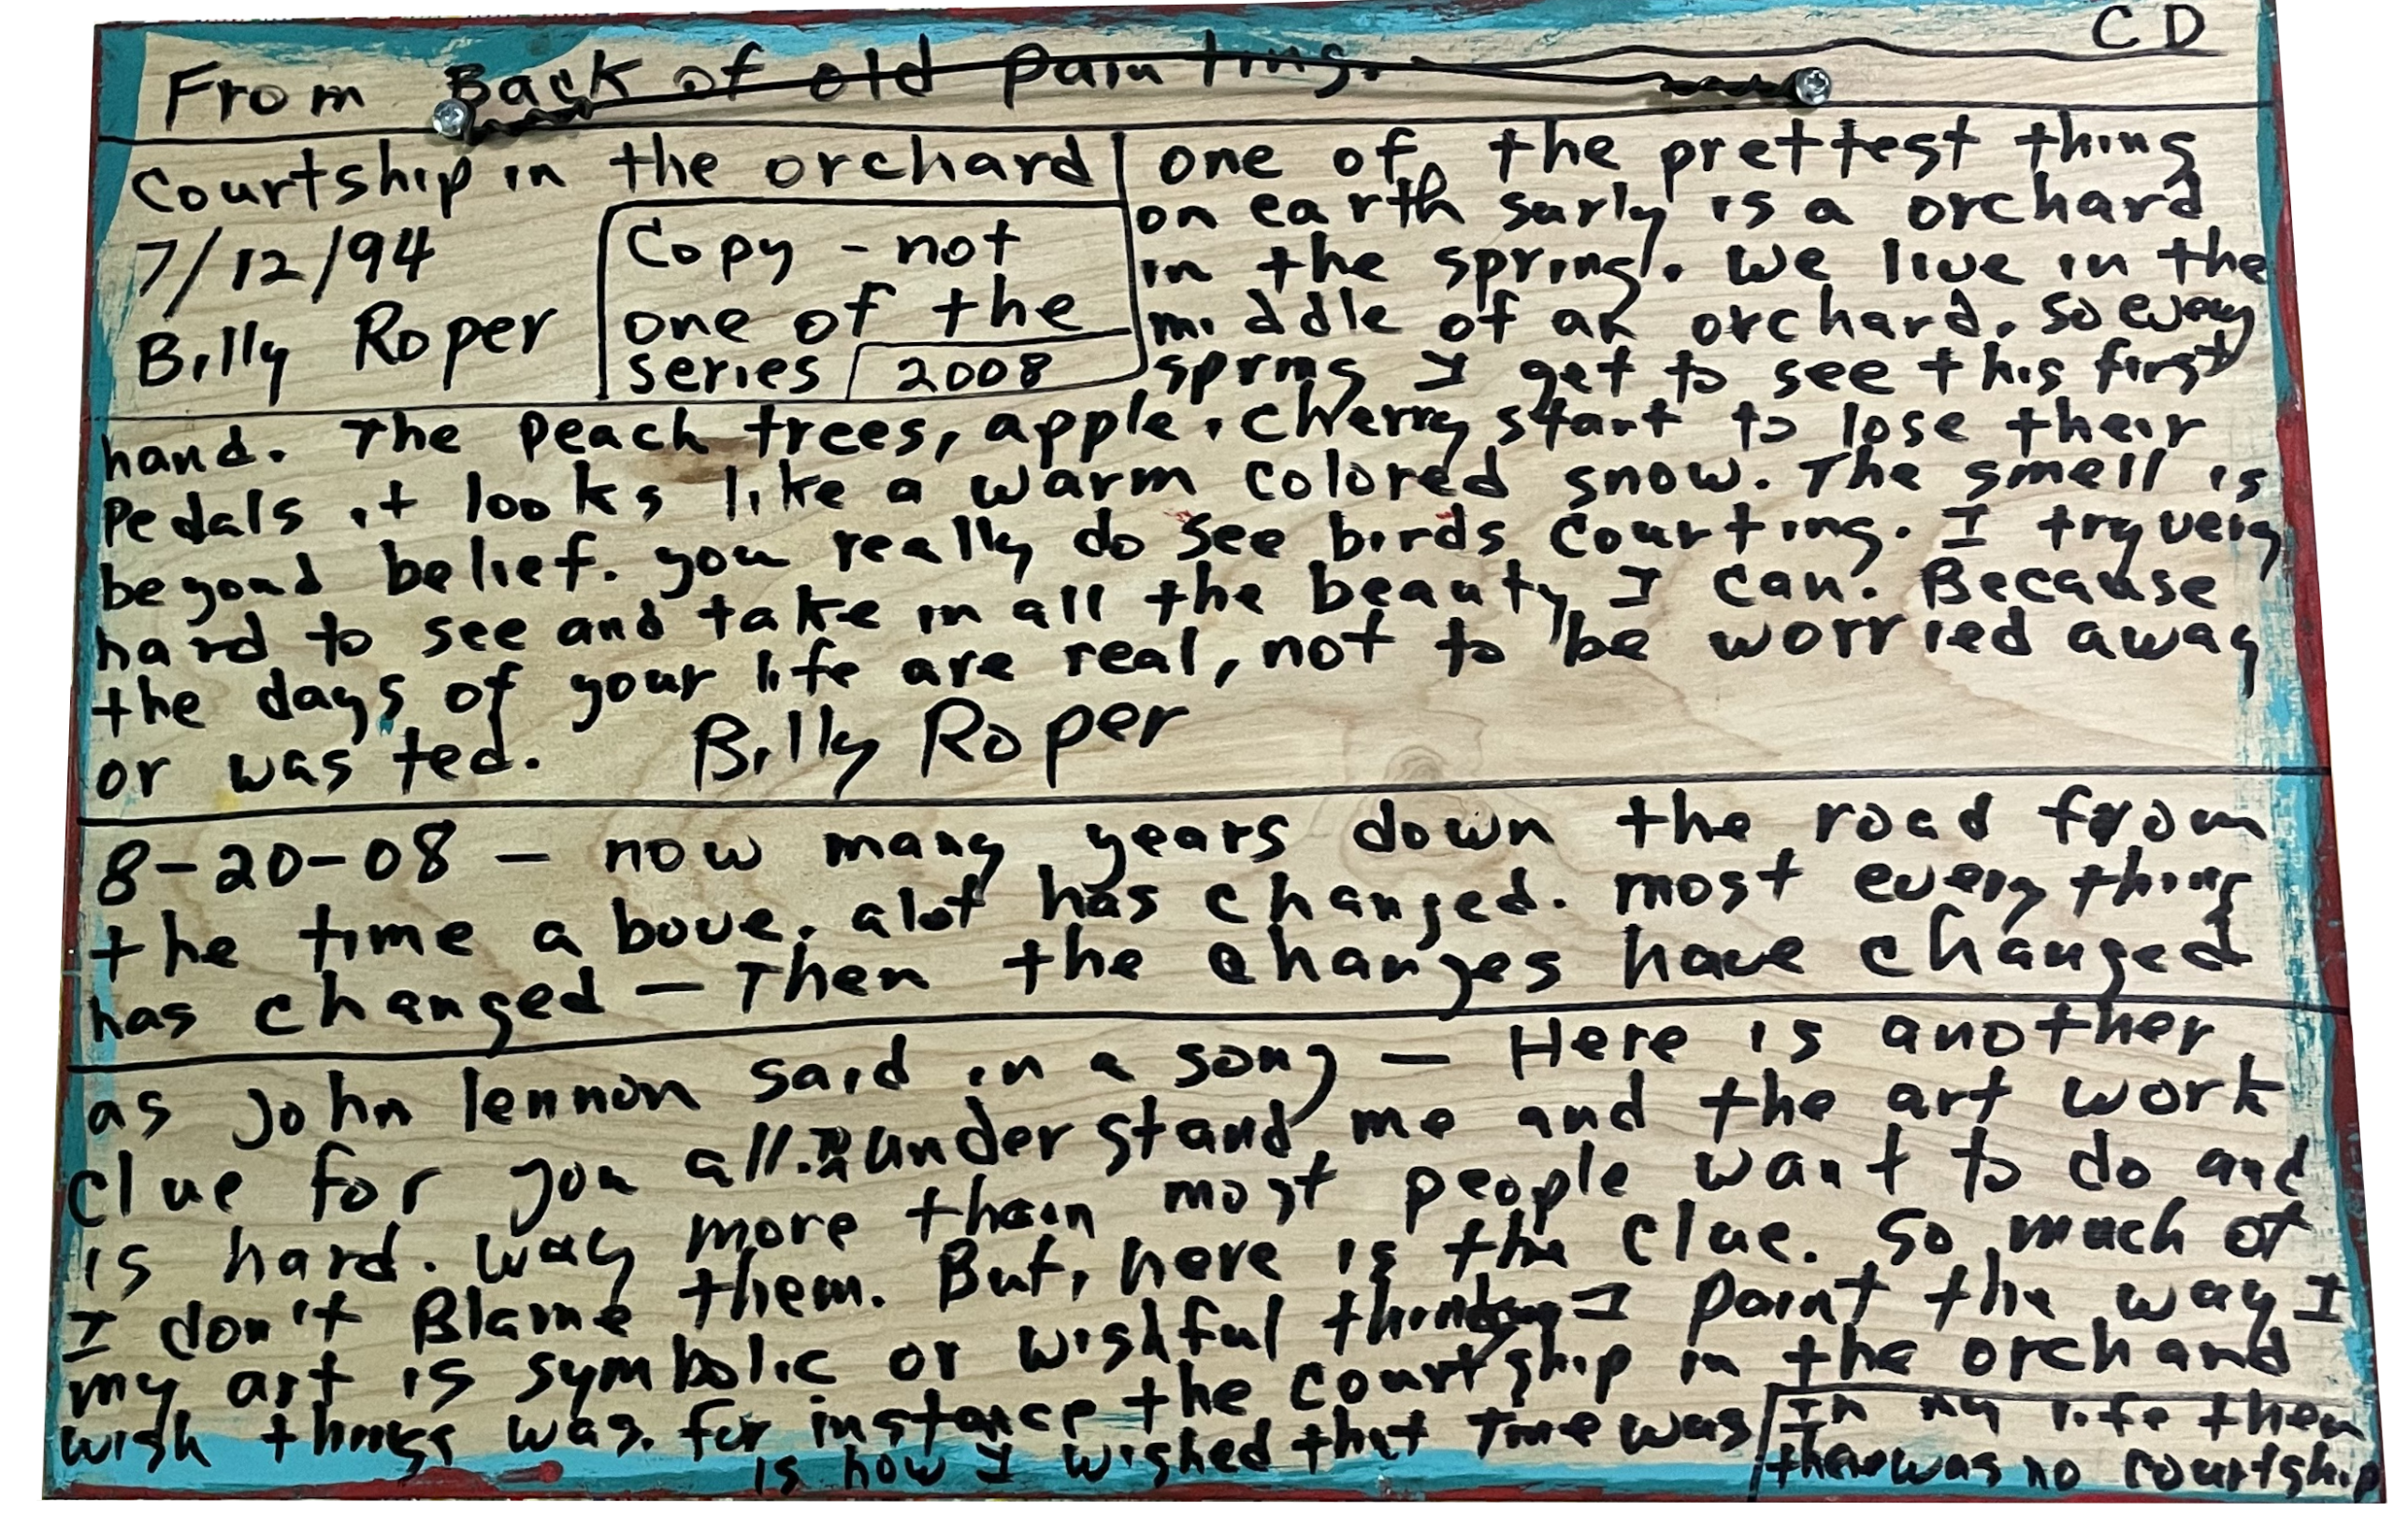 CD
From Back of old painting.
Courtship in the orchard
7/12/94
Billy Roper
Copy - not
one of the
series
2008
one of the prettest thing
on earth surly is a orchard
in the spring. We live in the
middle of an orchard. So every
spring I get to see this first
hand. The peach trees, apple, cherry start to lose their
Pedals it looks like a warm colored snow. The smell is
beyond belief. you really do see birds courting. I try very
hard to see and take in all the beauty I can. Because
the days of your life are real, not to be worried away
or wasted. Billy Roper
8-20-08 — now many years down the road from
the time above. alot has changed. most every thing
has changed — Then the changes have changed
as John lennon said in a song — Here is another
clue for you all. understand me and the art work
is hard. way more than most people want to do and
I don't Blame them. But, here is the clue. So much of
my art is symbolic or wishful thinking I paint the way I
wish things was. for instance the courtship in the orchard
is how I wished that time was
In my life then
there was no courtship